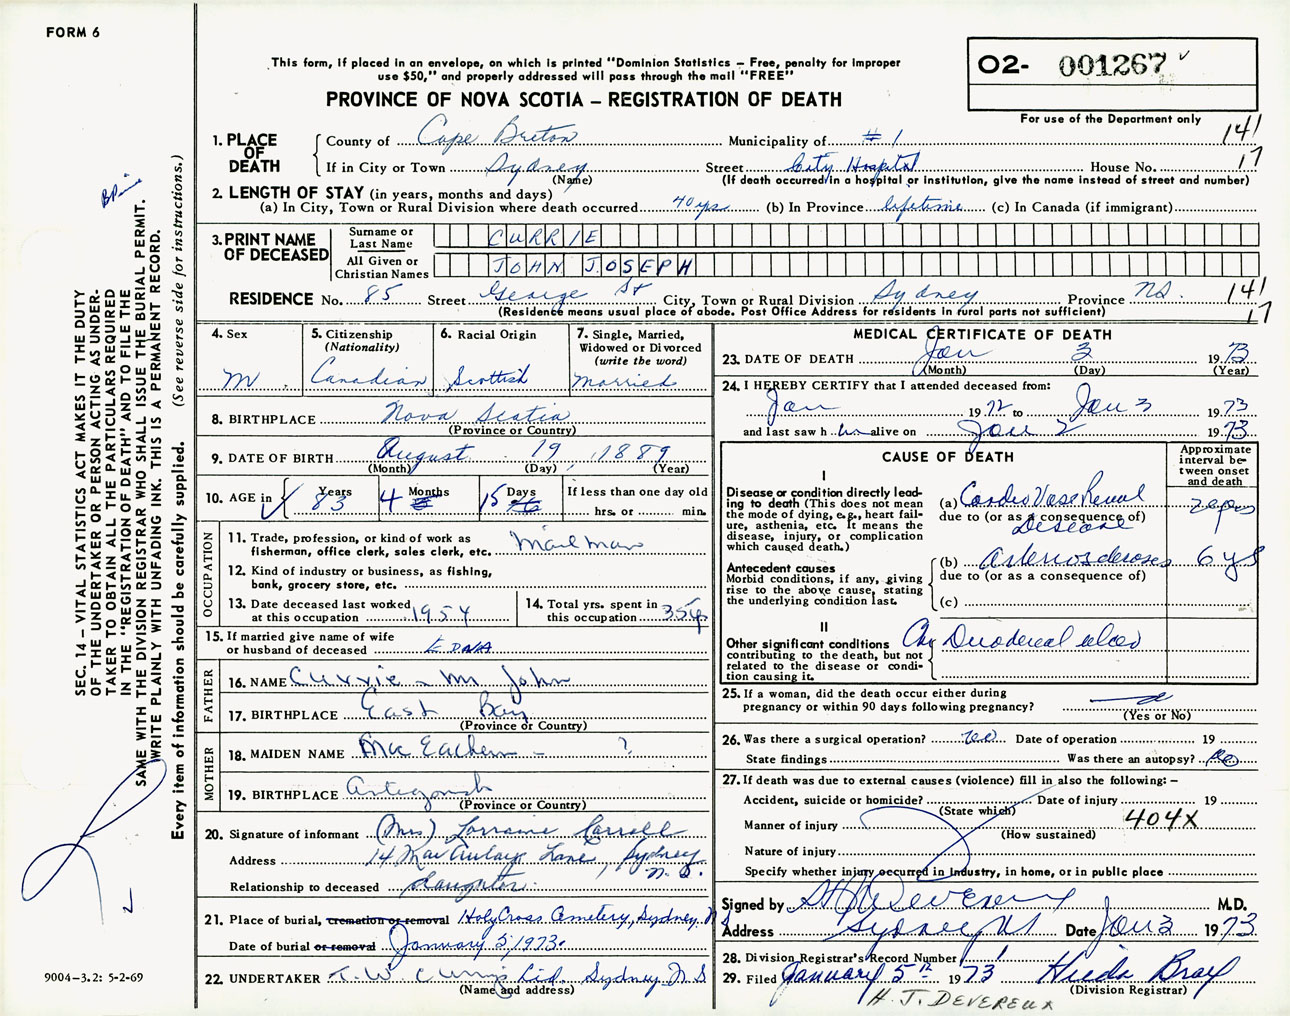 FORM 6
This form, if placed in an envelope, on which is printed "Dominion Statistics – Free, penalty for improper
use $50," and properly addressed will pass through the mail "FREE"
O2- 001267
For use of the Department only
PROVINCE OF NOVA SCOTIA – REGISTRATION OF DEATH
141
17
1. PLACE OF DEATH
County of Cape Breton Municipality of # 1
If in City or Town Sydney Street City Hospital House No.
(Name) (If death occurred in a hospital or institution, give the name instead of street and number)
2. LENGTH OF STAY (in years, months and days)
(a) In City, Town or Rural Division where death occurred 40 yrs (b) In Province lifetime (c) In Canada (if immigrant)
3. PRINT NAME OF DECEASED
Surname or Last Name CURRIE
All Given or Christian Names JOHN JOSEPH
RESIDENCE No. 85 Street George St City, Town or Rural Division Sydney Province NS. 141
(Residence means usual place of abode. Post Office Address for residents in rural parts not sufficient) 17
4. Sex M
5. Citizenship (Nationality) Canadian
6. Racial Origin Scottish
7. Single, Married, Widowed or Divorced (write the word) Married
8. BIRTHPLACE Nova Scotia
(Province or Country)
9. DATE OF BIRTH August 19, 1889
(Month) (Day) (Year)
10. AGE in Years 83 Months 4 Days 15 If less than one day old
hrs. or min.
OCCUPATION
11. Trade, profession, or kind of work as
fisherman, office clerk, sales clerk, etc. Mail man
12. Kind of industry or business, as fishing,
bank, grocery store, etc.
13. Date deceased last worked
at this occupation 1954
14. Total yrs. spent in
this occupation 35 yrs
15. If married give name of wife
or husband of deceased EDNA
FATHER
16. NAME Currie – Mr. John
17. BIRTHPLACE East Bay
(Province or Country)
MOTHER
18. MAIDEN NAME MacEachern – ?
19. BIRTHPLACE Antigonish
(Province or Country)
20. Signature of informant (Mrs.) Lorraine Carroll
Address 14 MacAulay Lane, Sydney, N.S.
Relationship to deceased Daughter
21. Place of burial, cremation or removal Holy Cross Cemetery, Sydney, NS
Date of burial or removal January 5, 1973.
22. UNDERTAKER T. W. Curry Ltd. Sydney N.S
(Name and address)
MEDICAL CERTIFICATE OF DEATH
23. DATE OF DEATH Jan 3 1973
(Month) (Day) (Year)
24. I HEREBY CERTIFY that I attended deceased from:
Jan 1972 to Jan 3 1973
and last saw h im alive on Jan 2 1973
CAUSE OF DEATH
Approximate interval between onset and death
I
Disease or condition directly lead-
ing to death (This does not mean
the mode of dying, e.g., heart fail-
ure, asthenia, etc. It means the
disease, injury, or complication
which caused death.)
(a) Cardio Vasc Renal
due to (or as a consequence of)
Disease
Antecedent causes
Morbid conditions, if any, giving
rise to the above cause, stating
the underlying condition last.
(b) Arteriosclerosis 6 ys
due to (or as a consequence of)
(c)
II
Other significant conditions
contributing to the death, but not
related to the disease or condi-
tion causing it.
Chr Duodenal ulcer
25. If a woman, did the death occur either during
pregnancy or within 90 days following pregnancy?
(Yes or No)
26. Was there a surgical operation? no Date of operation 19
State findings Was there an autopsy? No
27. If death was due to external causes (violence) fill in also the following: –
Accident, suicide or homicide? Date of injury 19
(State which)
Manner of injury 404X
(How sustained)
Nature of injury
Specify whether injury occurred in industry, in home, or in public place
Signed by H J Devereux M.D.
Address Sydney NS Date Jan 3 1973
28. Division Registrar's Record Number 1
29. Filed January 5th 1973 Hilda Bray
(Division Registrar)
H. J. DEVEREUX
SEC. 14 – VITAL STATISTICS ACT MAKES IT THE DUTY
OF THE UNDERTAKER OR PERSON ACTING AS UNDER-
TAKER TO OBTAIN ALL THE PARTICULARS REQUIRED
IN THE "REGISTRATION OF DEATH" AND TO FILE THE
SAME WITH THE DIVISION REGISTRAR WHO SHALL ISSUE THE BURIAL PERMIT.
WRITE PLAINLY WITH UNFADING INK. THIS IS A PERMANENT RECORD.
Every item of information should be carefully supplied. (See reverse side for instructions.)
9004–3.2: 5-2-69